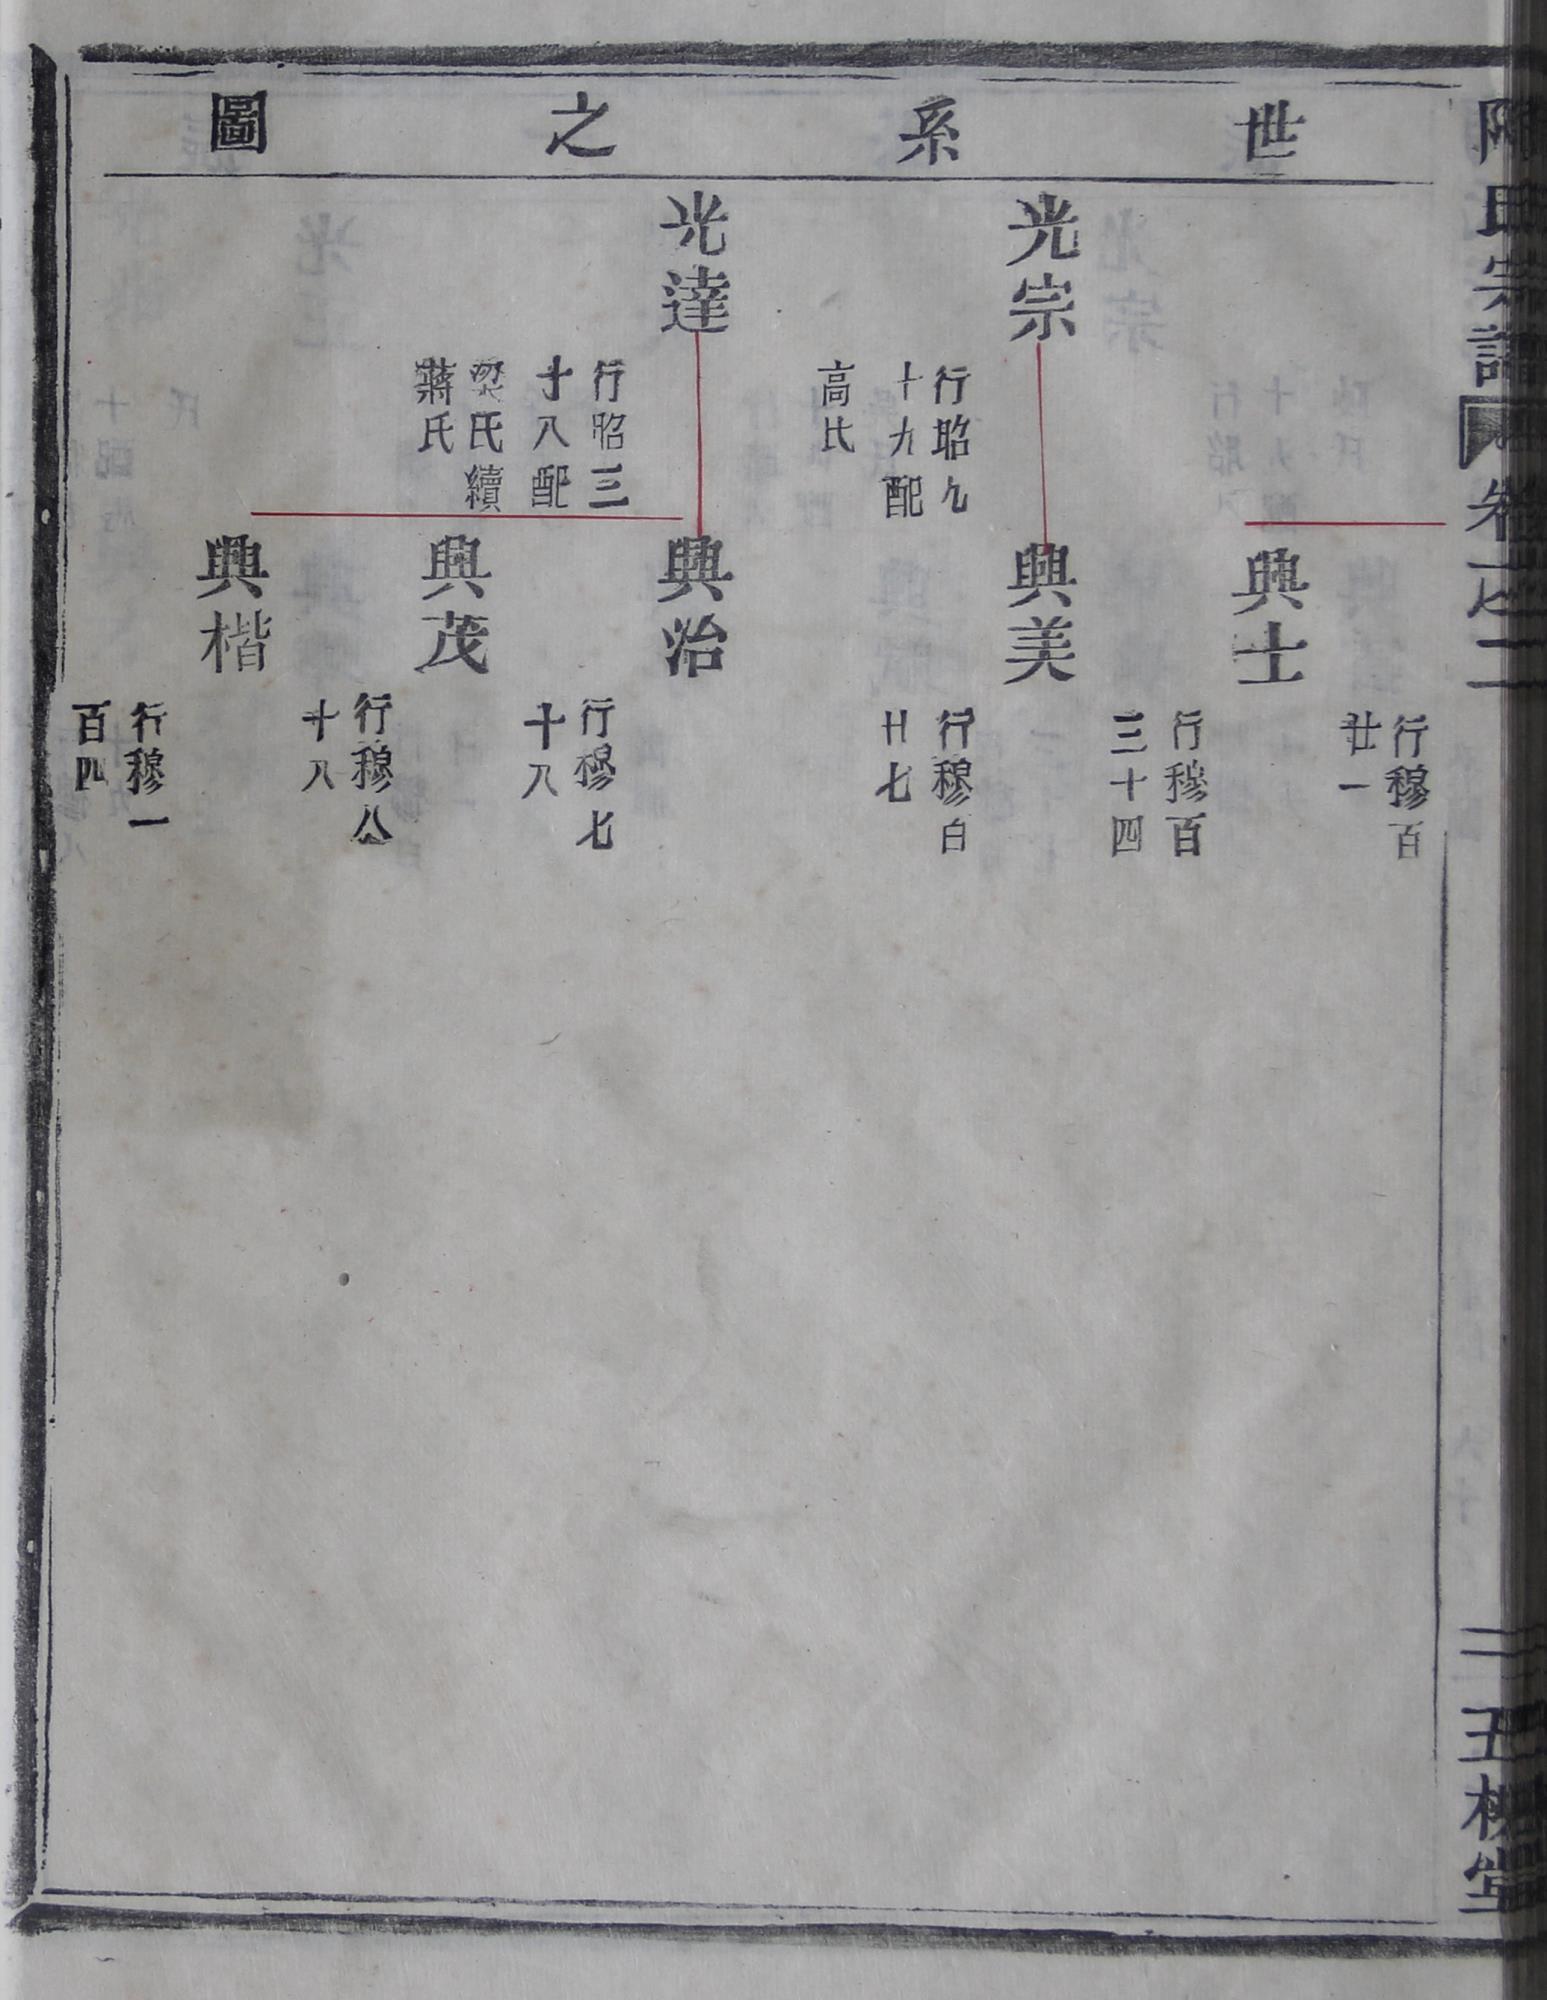 世系之圖
氏宗譜
卷一之二
行穆百
廿一
興士
行穆百
三十四
光宗
行昭九
十九配
高氏
興美
行穆百
廿七
光達
行昭三
十八配
梁氏續
蔣氏
興治
行穆七
十八
興茂
行穆八
十八
興楷
行穆一
百四
二
五桂堂